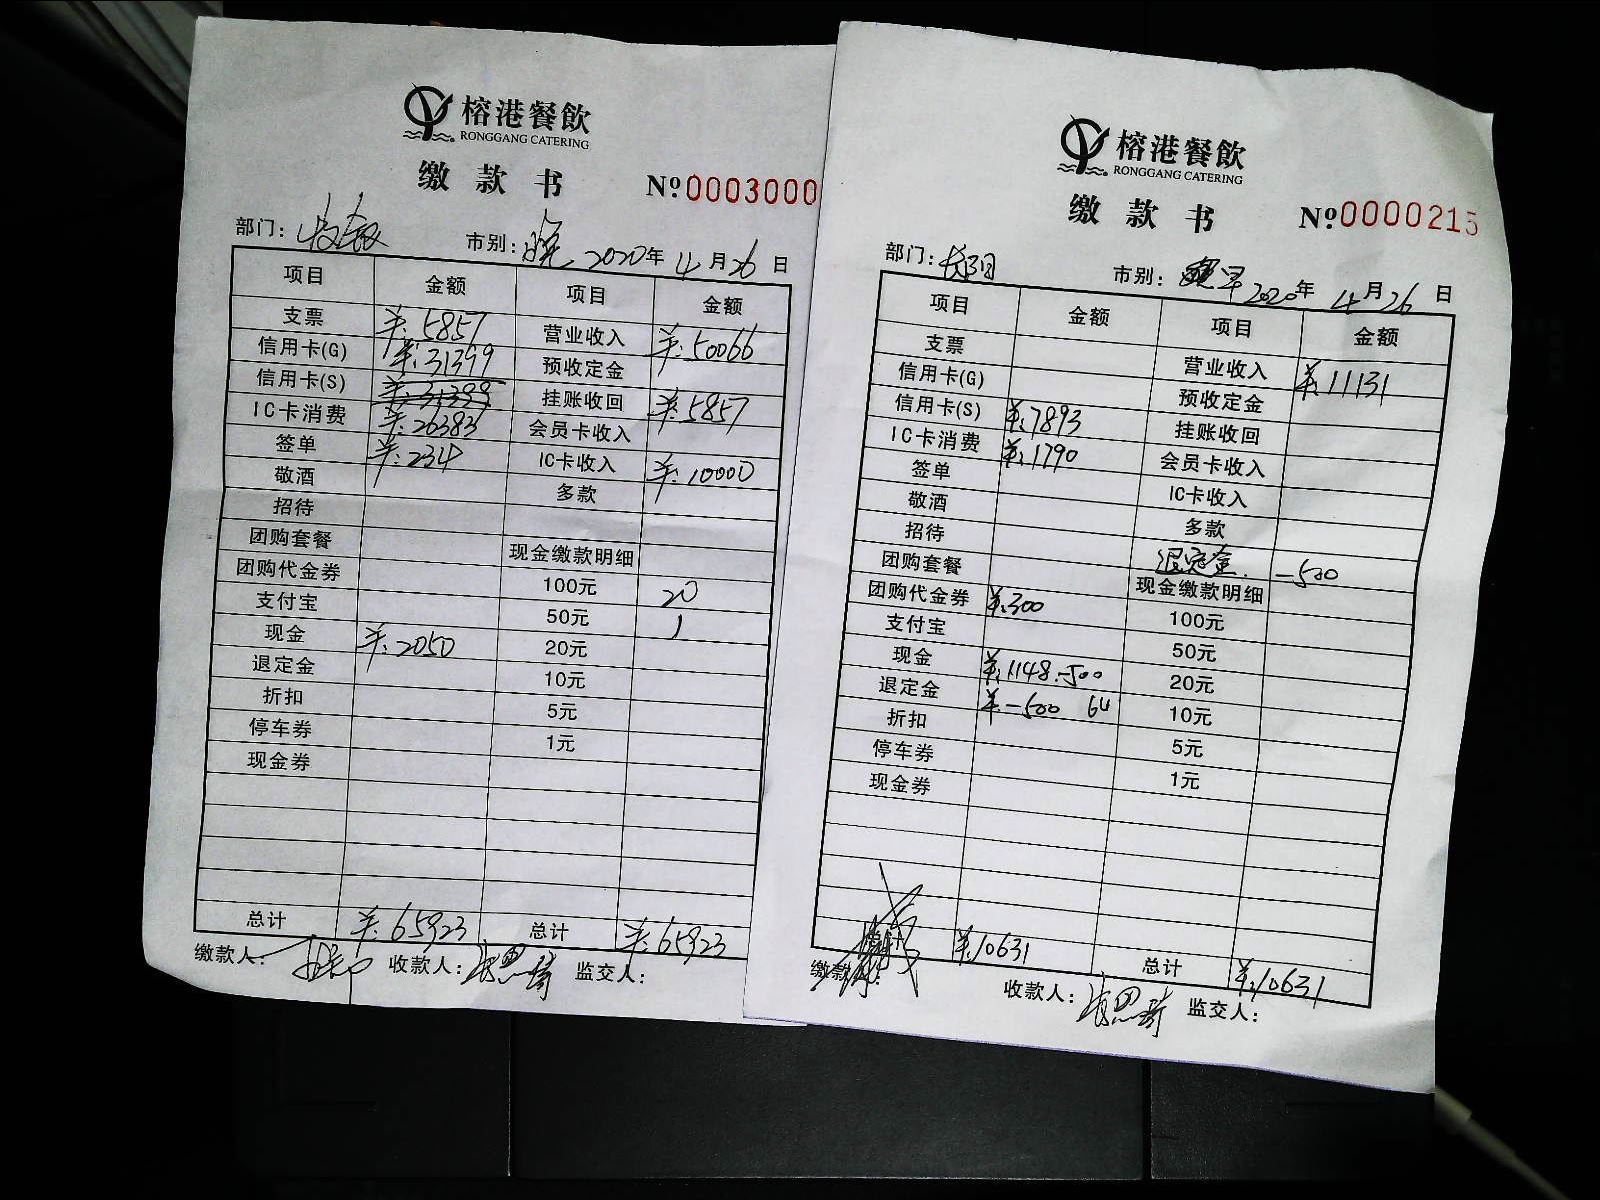 榕港餐飲
RONGGANG CATERING
缴款书 №0003000
部门: 市别:晚 2020年4月26日
项目 金额 项目 金额
支票 ¥:5857 营业收入 ¥:50066
信用卡(G) ¥:31399 预收定金
信用卡(S) ¥:31399 挂账收回 ¥:5857
IC卡消费 ¥:26383 会员卡收入
签单 ¥:234 IC卡收入 ¥:10000
敬酒 多款
招待
团购套餐 现金缴款明细
团购代金券 100元 20
支付宝 50元 1
现金 ¥:2050 20元
退定金 10元
折扣 5元
停车券 1元
现金券
总计 ¥:65923 总计 ¥:65923
缴款人: 收款人: 监交人:
榕港餐飲
RONGGANG CATERING
缴款书 №0000215
部门: 市别: 早 2020年4月26日
项目 金额 项目 金额
支票 营业收入 ¥:11131
信用卡(G) 预收定金
信用卡(S) ¥:7893 挂账收回
IC卡消费 ¥:1790 会员卡收入
签单 IC卡收入
敬酒 多款
招待 退定金 -500
团购套餐 现金缴款明细
团购代金券 ¥:300 100元
支付宝 50元
现金 ¥:1148-500 20元
退定金 ¥-500 64 10元
折扣 5元
停车券 1元
现金券
总计 ¥:10631 总计 ¥:10631
缴款人: 收款人: 监交人: